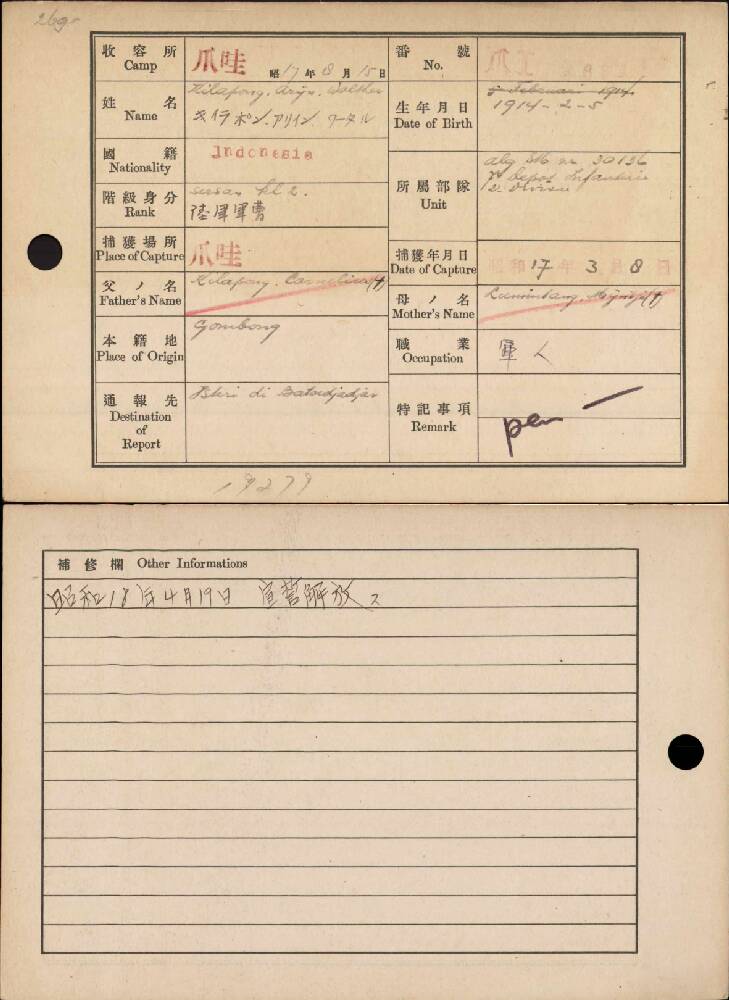 収容所 Camp
爪哇 昭17年8月15日
番號 No.
姓名 Name
Kilapong, Arijn, Wolther
キイラポン.アリイン ワータル
生年月日 Date of Birth
5 Februari 1914
1914-2-5
國籍 Nationality
Indonesia
階級身分 Rank
sersan kl 2.
陸軍軍曹
所屬部隊 Unit
alg stb nr. 30136
Depot Infanterie
捕獲場所 Place of Capture
爪哇
捕獲年月日 Date of Capture
昭和17年3月8日
父ノ名 Father's Name
Kilapong, Carnelius (†)
母ノ名 Mother's Name
本籍地 Place of Origin
Gombong
職業 Occupation
軍人
通報先 Destination of Report
Istri di Batoedjadjar
特記事項 Remark
19279
補修欄 Other Informations
昭和18年4月19日 宣誓解放ス